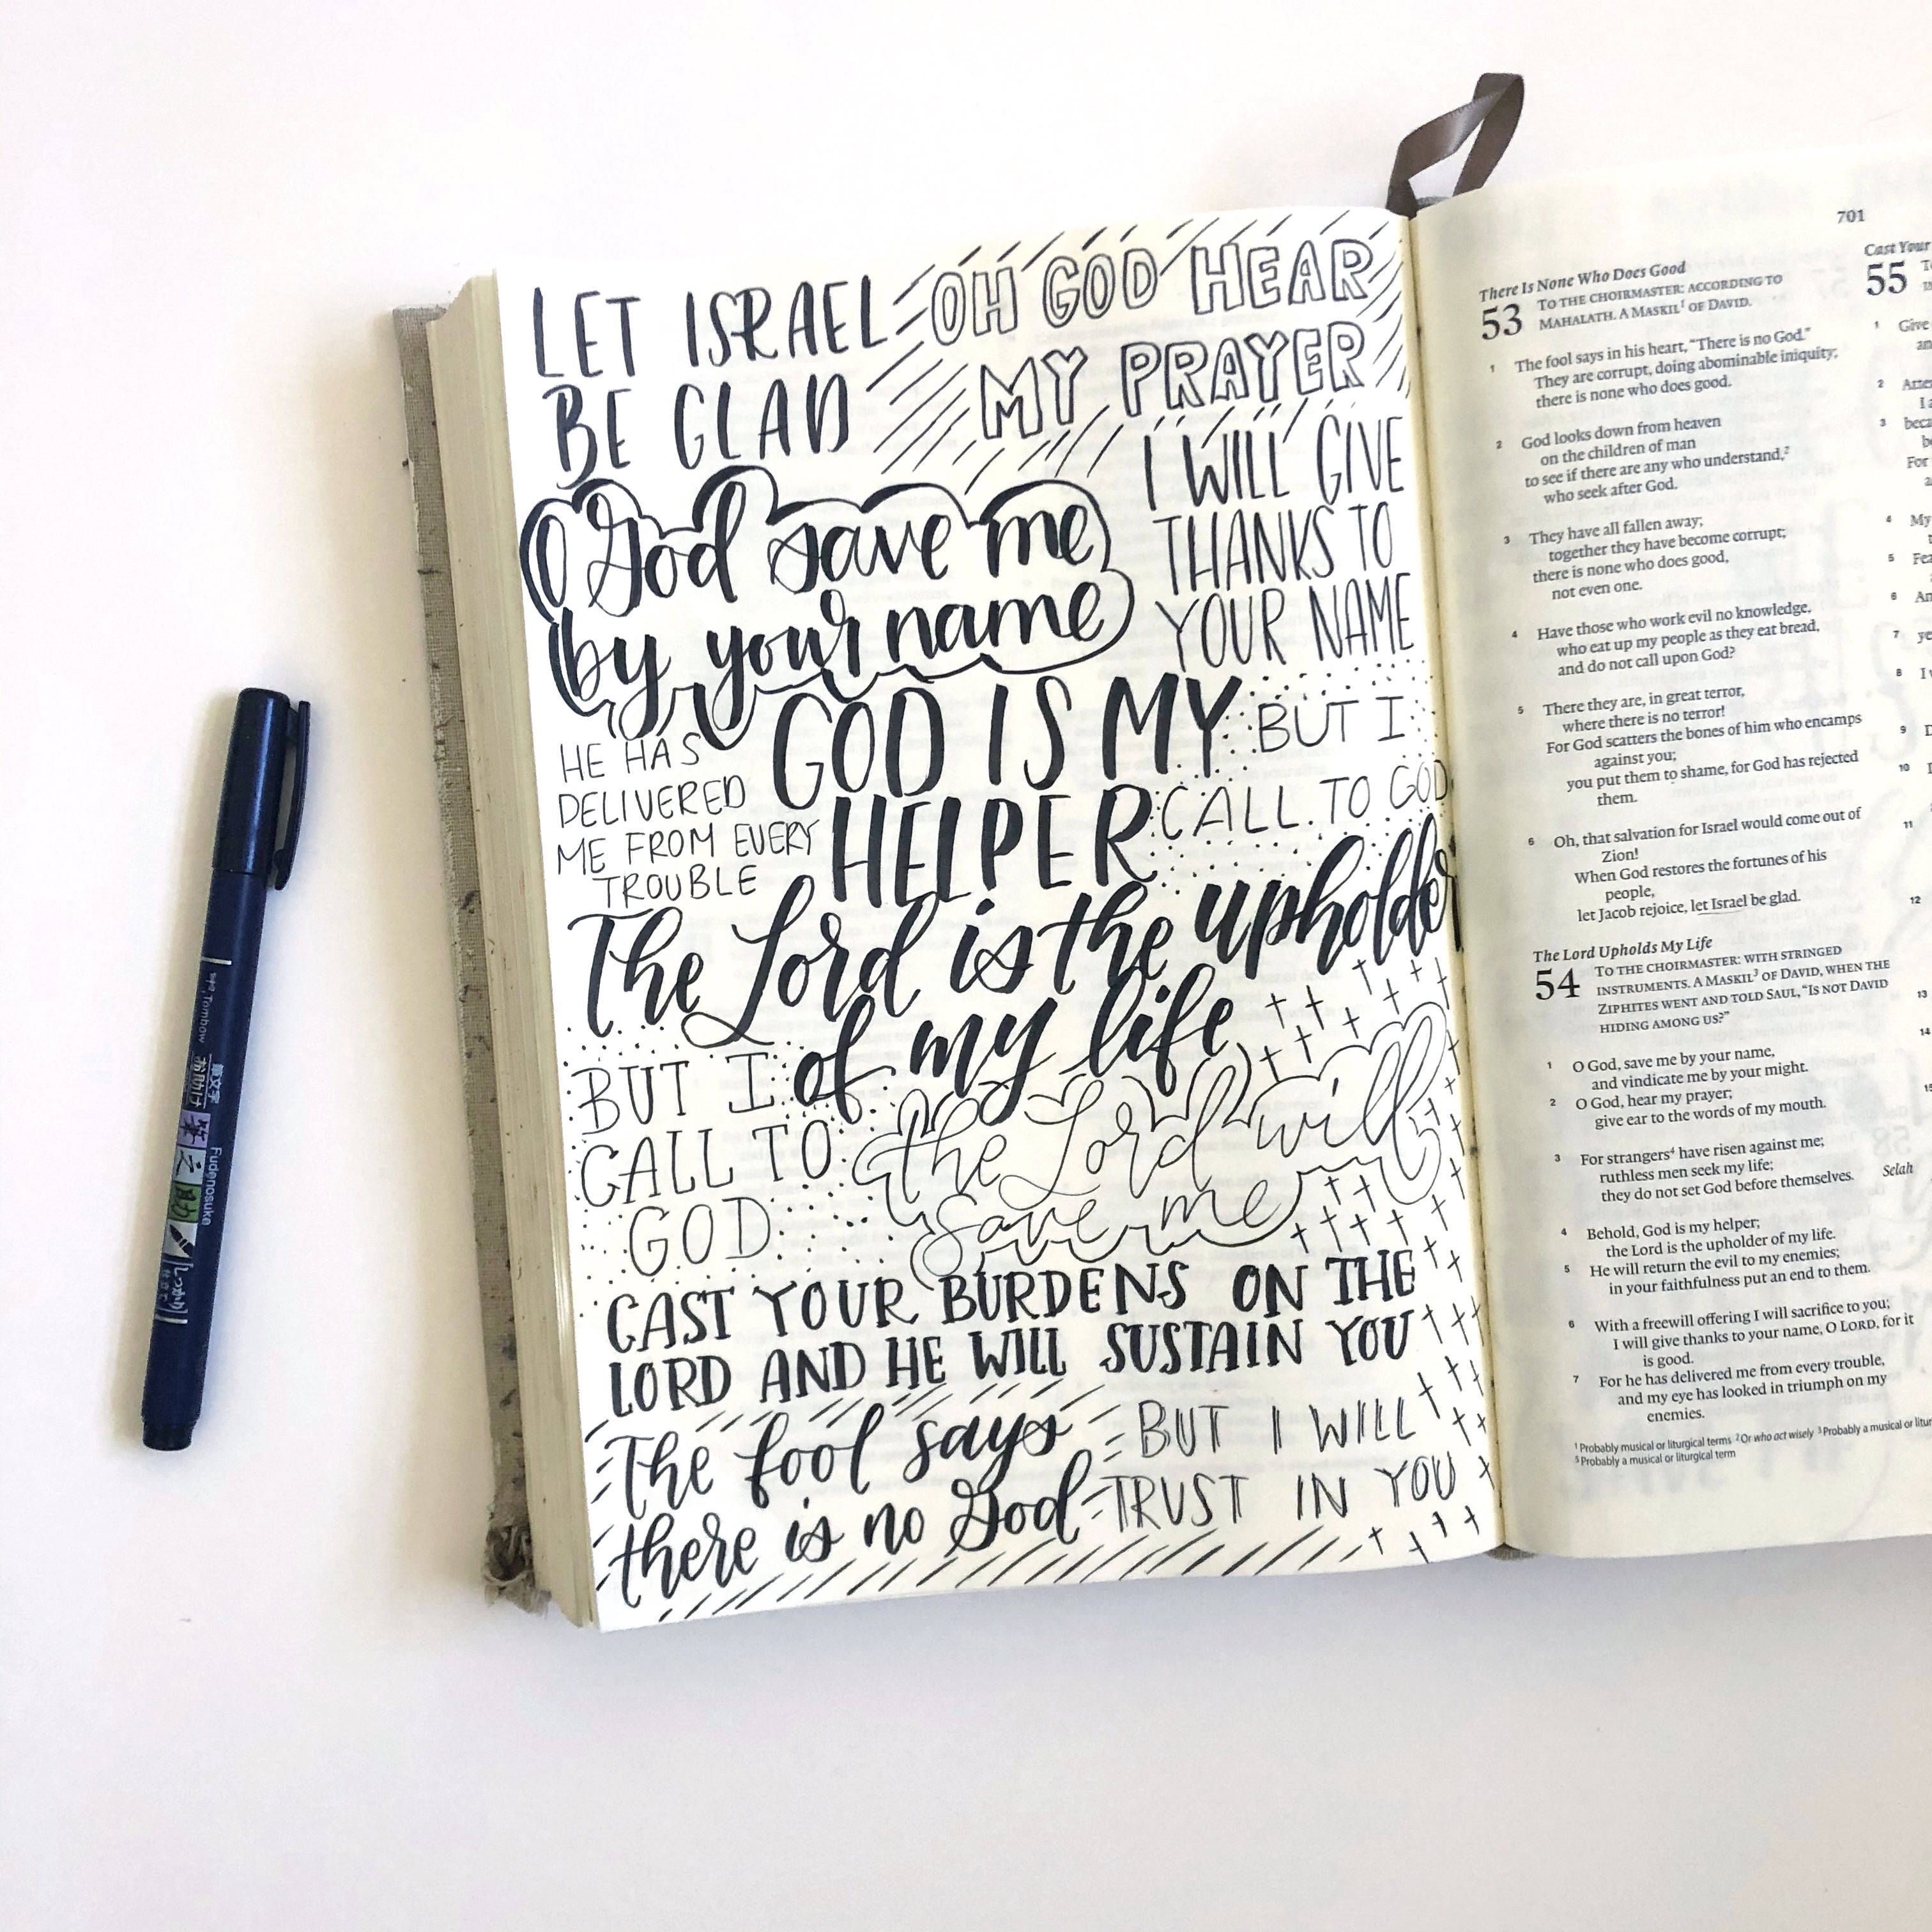 LET ISRAEL
BE GLAD
OH GOD HEAR
MY PRAYER
O God save me
by your name
I WILL GIVE
THANKS TO
YOUR NAME
HE HAS
DELIVERED
ME FROM EVERY
TROUBLE
GOD IS MY
HELPER
BUT I
CALL TO GOD
The Lord is the upholder
of my life
BUT I
CALL TO
GOD
the Lord will
save me
CAST YOUR BURDENS ON THE
LORD AND HE WILL SUSTAIN YOU
The fool says
there is no God
BUT I WILL
TRUST IN YOU
Tombow
筆文字
Fudenosuke
しっかり
701
There Is None Who Does Good
53 TO THE CHOIRMASTER: ACCORDING TO
MAHALATH. A MASKIL1 OF DAVID.
1 The fool says in his heart, “There is no God.”
They are corrupt, doing abominable iniquity;
there is none who does good.
2 God looks down from heaven
on the children of man
to see if there are any who understand,2
who seek after God.
3 They have all fallen away;
together they have become corrupt;
there is none who does good,
not even one.
4 Have those who work evil no knowledge,
who eat up my people as they eat bread,
and do not call upon God?
5 There they are, in great terror,
where there is no terror!
For God scatters the bones of him who encamps
against you;
you put them to shame, for God has rejected
them.
6 Oh, that salvation for Israel would come out of
Zion!
When God restores the fortunes of his
people,
let Jacob rejoice, let Israel be glad.
The Lord Upholds My Life
54 TO THE CHOIRMASTER: WITH STRINGED
INSTRUMENTS. A MASKIL3 OF DAVID, WHEN THE
ZIPHITES WENT AND TOLD SAUL, “IS NOT DAVID
HIDING AMONG US?”
1 O God, save me by your name,
and vindicate me by your might.
2 O God, hear my prayer;
give ear to the words of my mouth.
3 For strangers4 have risen against me;
ruthless men seek my life;
they do not set God before themselves. Selah
4 Behold, God is my helper;
the Lord is the upholder of my life.
5 He will return the evil to my enemies;
in your faithfulness put an end to them.
6 With a freewill offering I will sacrifice to you;
I will give thanks to your name, O LORD, for it
is good.
7 For he has delivered me from every trouble,
and my eye has looked in triumph on my
enemies.
1 Probably musical or liturgical terms 2 Or who act wisely 3 Probably a musical or
5 Probably a musical or liturgical term
Cast Your
55
1 Give
2
3
For
4 My
5
6
7 ye
8 I
9
10
11
12
13
14